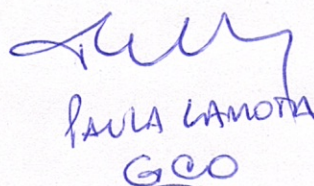 PAULA LAMOTTA
GCO